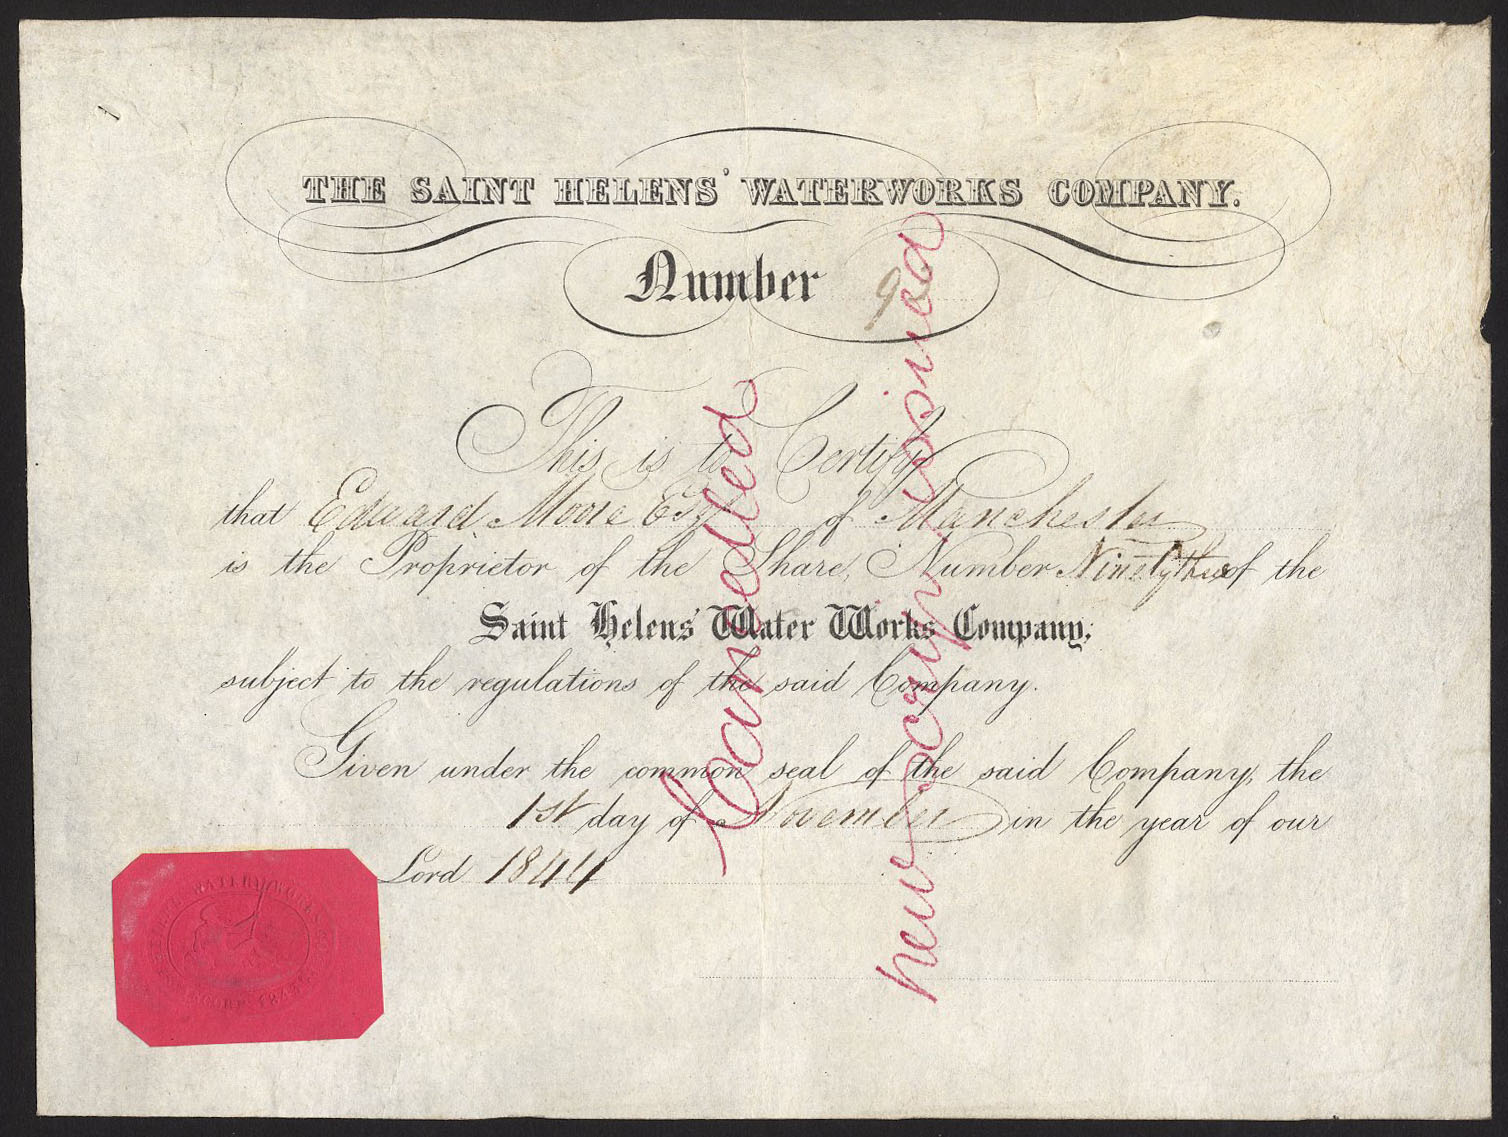 THE SAINT HELENS' WATERWORKS COMPANY.
Number 93
This is to Certify
that Edward Moore Esqr of Manchester
is the Proprietor of the Share, Number Ninety three of the
Saint Helens' Water Works Company,
subject to the regulations of the said Company.
Given under the common seal of the said Company, the
1st day of November in the year of our
Lord 1844
Cancelled
new scrip issued
WATERWORKS